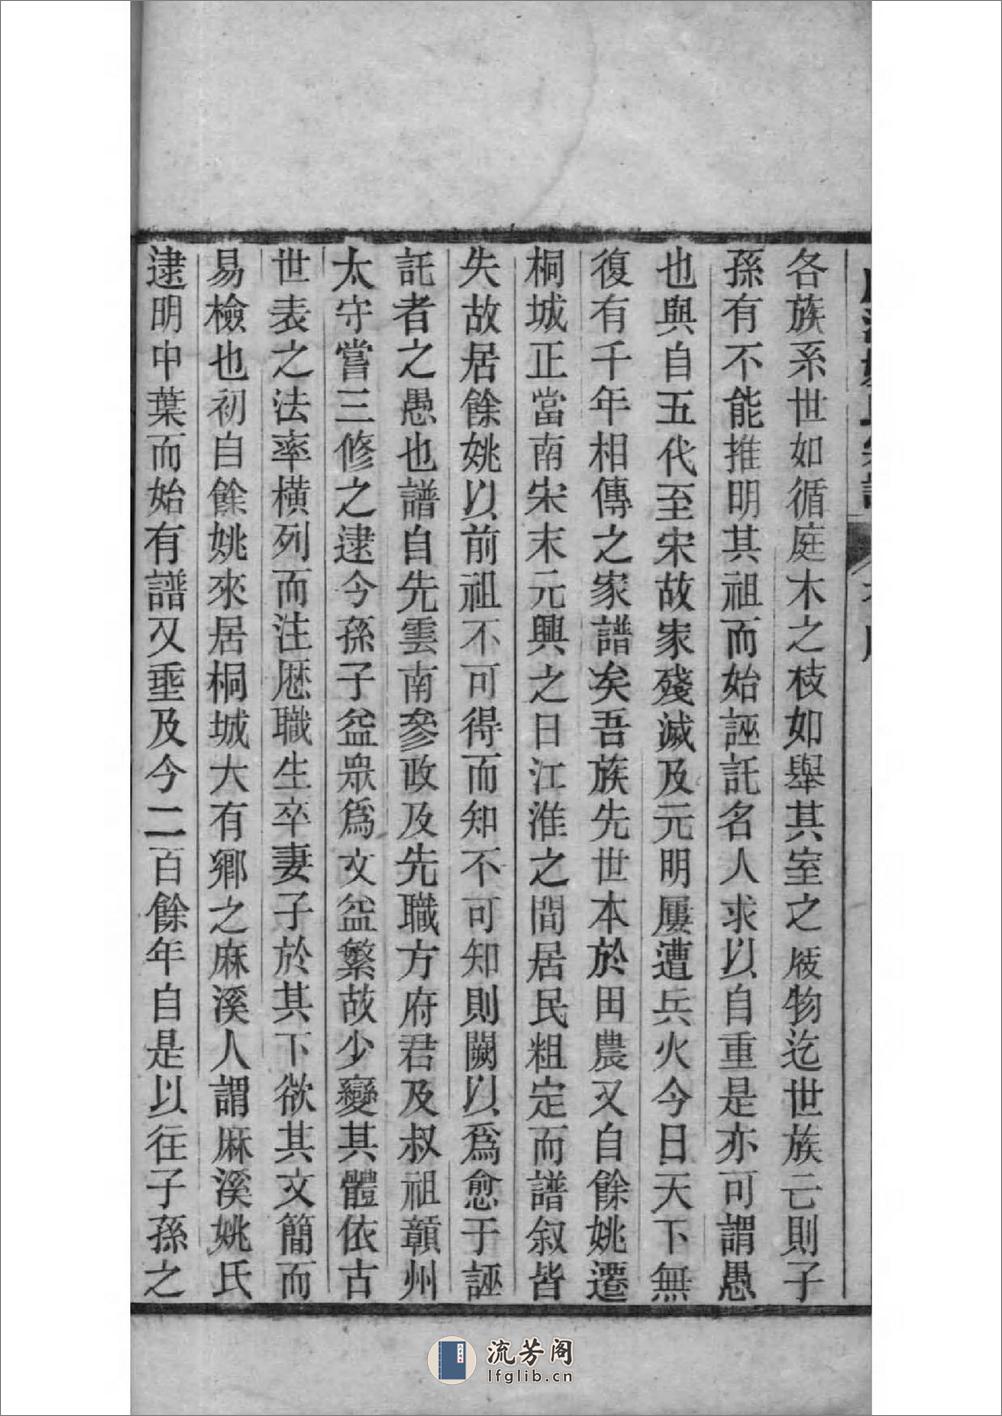 各族系世如循庭木之枝如舉其室之庪物迄世族亡則子
孫有不能推明其祖而始誣託名人求以自重是亦可謂愚
也與自五代至宋故家殘滅及元明屢遭兵火今日天下無
復有千年相傳之家譜矣吾族先世本於田農又自餘姚遷
桐城正當南宋末元興之日江淮之間居民粗定而譜叙皆
失故居餘姚以前祖不可得而知不可知則闕以爲愈于誣
託者之愚也譜自先雲南參政及先職方府君及叔祖贛州
太守嘗三修之逮今孫子益眾爲文益繁故少變其體依古
世表之法率橫列而注歷職生卒妻子於其下欲其文簡而
易檢也初自餘姚來居桐城大有鄉之麻溪人謂麻溪姚氏
逮明中葉而始有譜又垂及今二百餘年自是以往子孫之
流芳阁
lfglib.cn